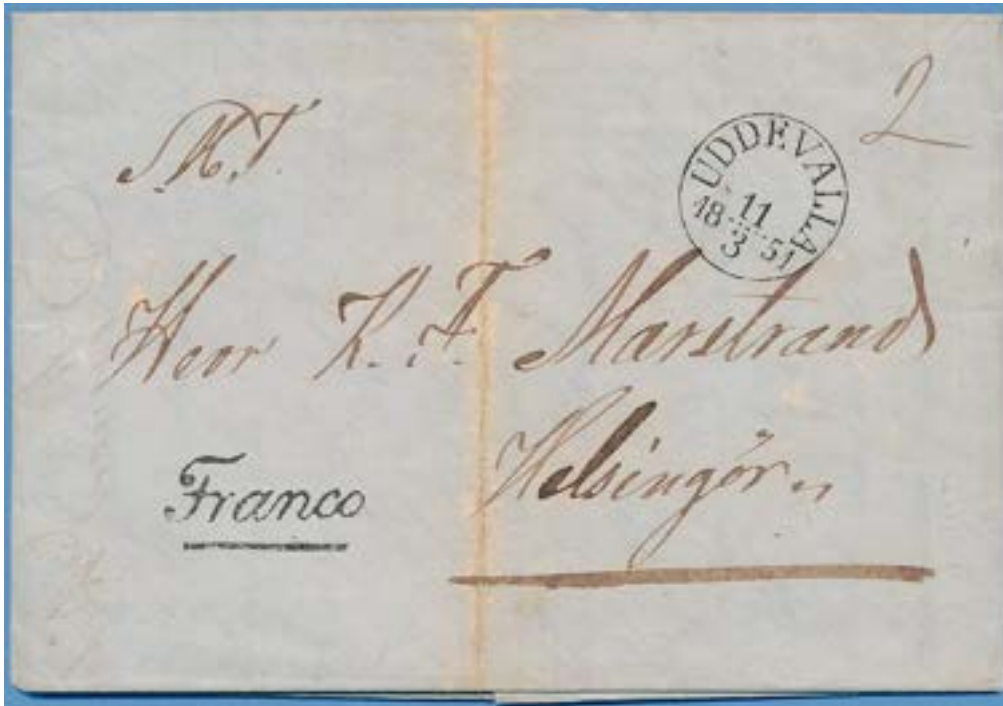 2
UDDEVALLA
11
18 51
3
Herr K. F. Marstrand
Helsingör
Franco